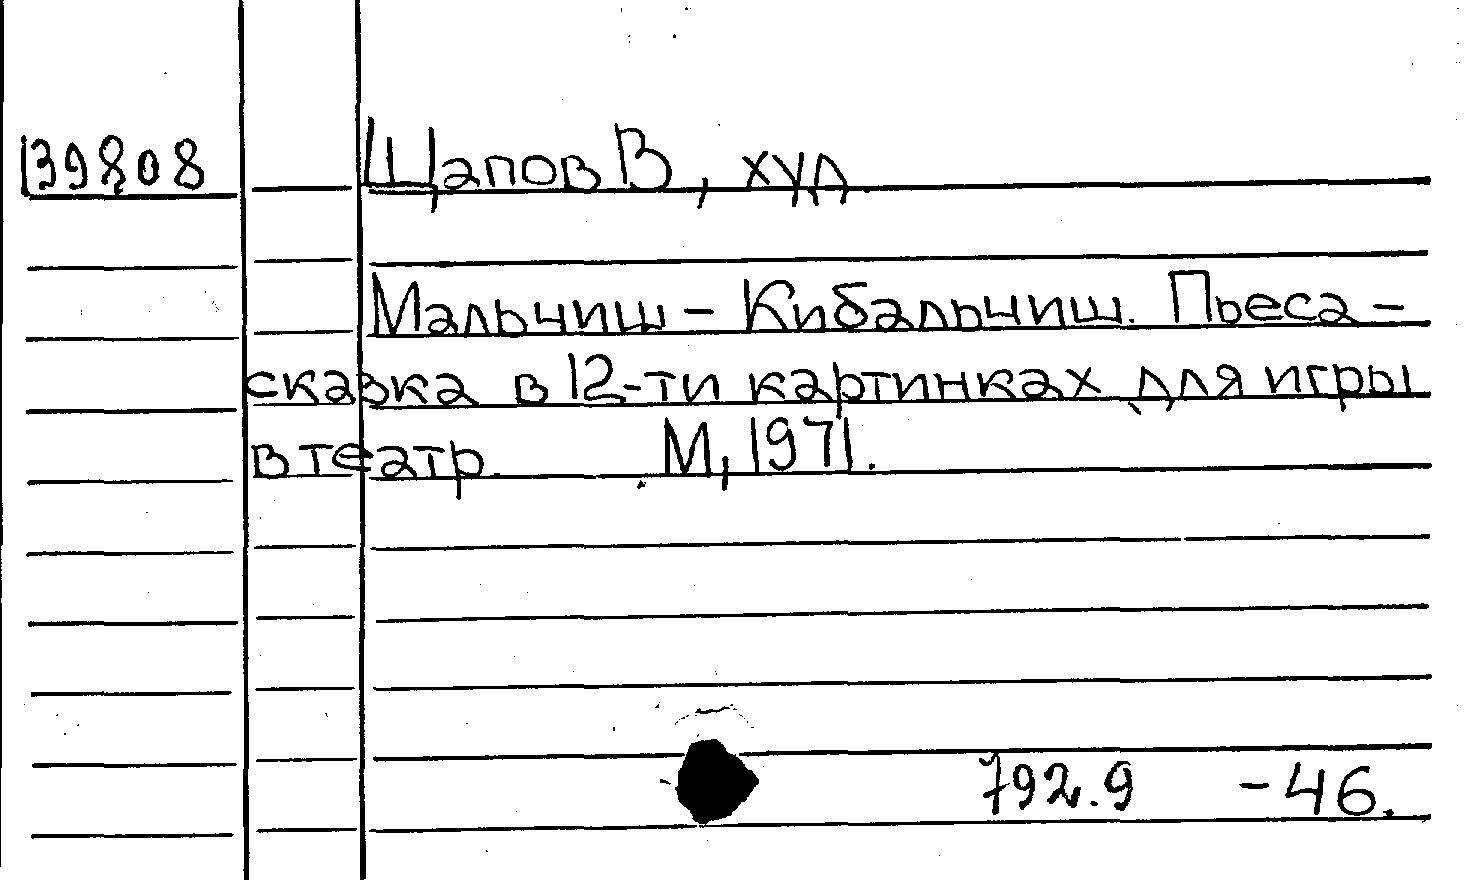 139808 Щапов В, худ.
Мальчиш - Кибальчиш. Пьеса -
сказка в 12-ти картинках для игры
в театр. М, 1971.
792.9 -46.